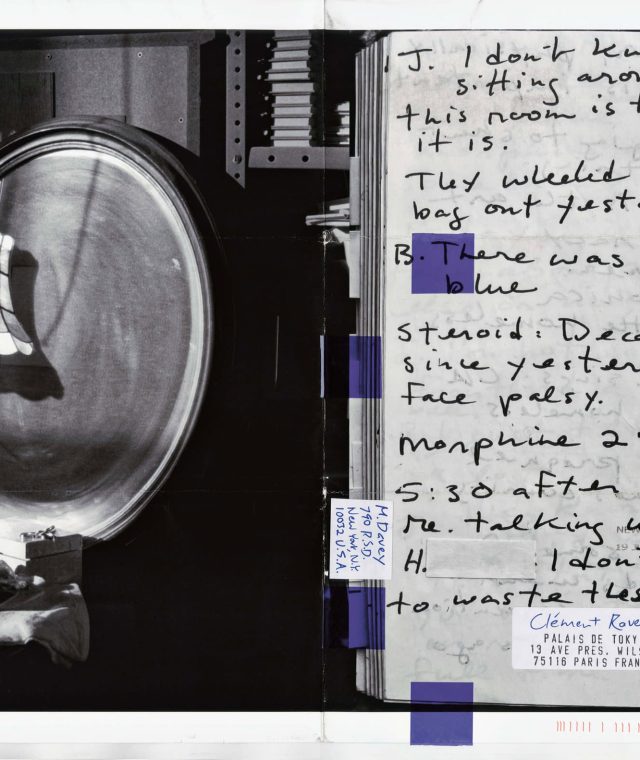 J. I don't kn
sitting aro
this room is t
it is.
They wheeled
bag out yest
B. There was
blue
Steroid: Dec
since yester
Face palsy.
Morphine 2
5:30 after
re. talking
H. I don'
to waste thes
M. Davey
790 R.S.D.
New York, N.Y.
10032 U.S.A.
Clément Rove
PALAIS DE TOKY
13 AVE PRES. WILS
75116 PARIS FRAN